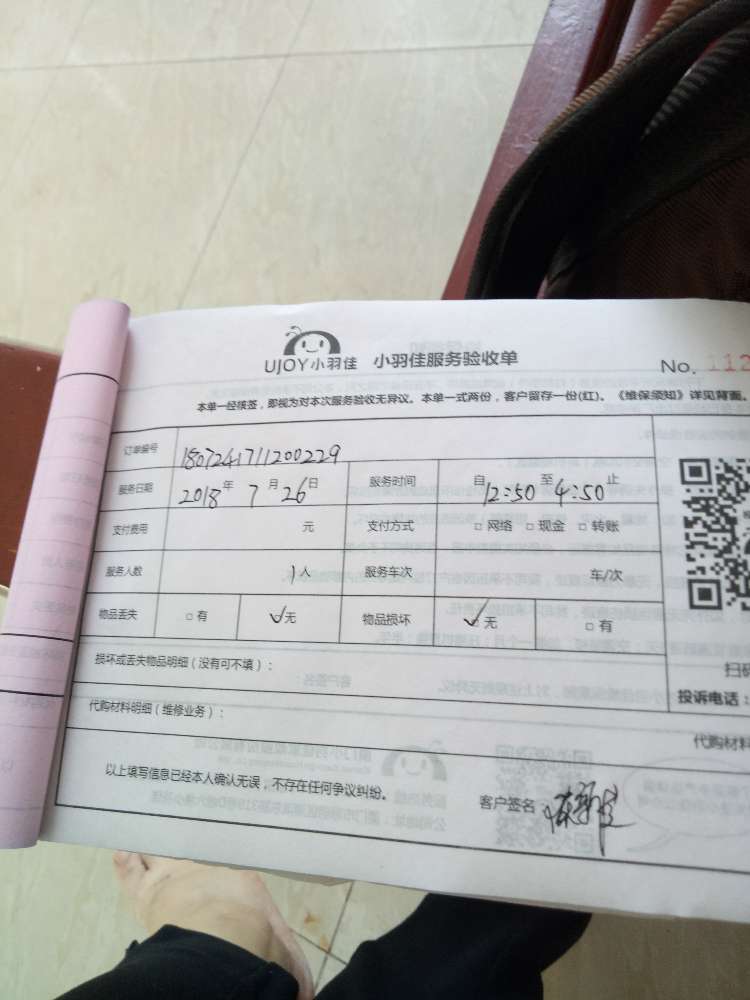 UJOY小羽佳 小羽佳服务验收单 No. 112
本单一经核签，即视为对本次服务验收无异议。本单一式两份，客户留存一份(红)。《维保须知》详见背面。
订单编号 1807241711200229
服务日期 2018年7月26日 服务时间 自12:50至4:50止
支付费用 元 支付方式 □ 网络 □ 现金 □ 转账
服务人数 1人 服务车次 车/次
物品丢失 □ 有 ✓无 物品损坏 ✓□ 无 □ 有
损坏或丢失物品明细（没有可不填）： 扫码
投诉电话：
代购材料明细（维修业务）： 代购材料
以上填写信息已经本人确认无误，不存在任何争议纠纷。 客户签名：